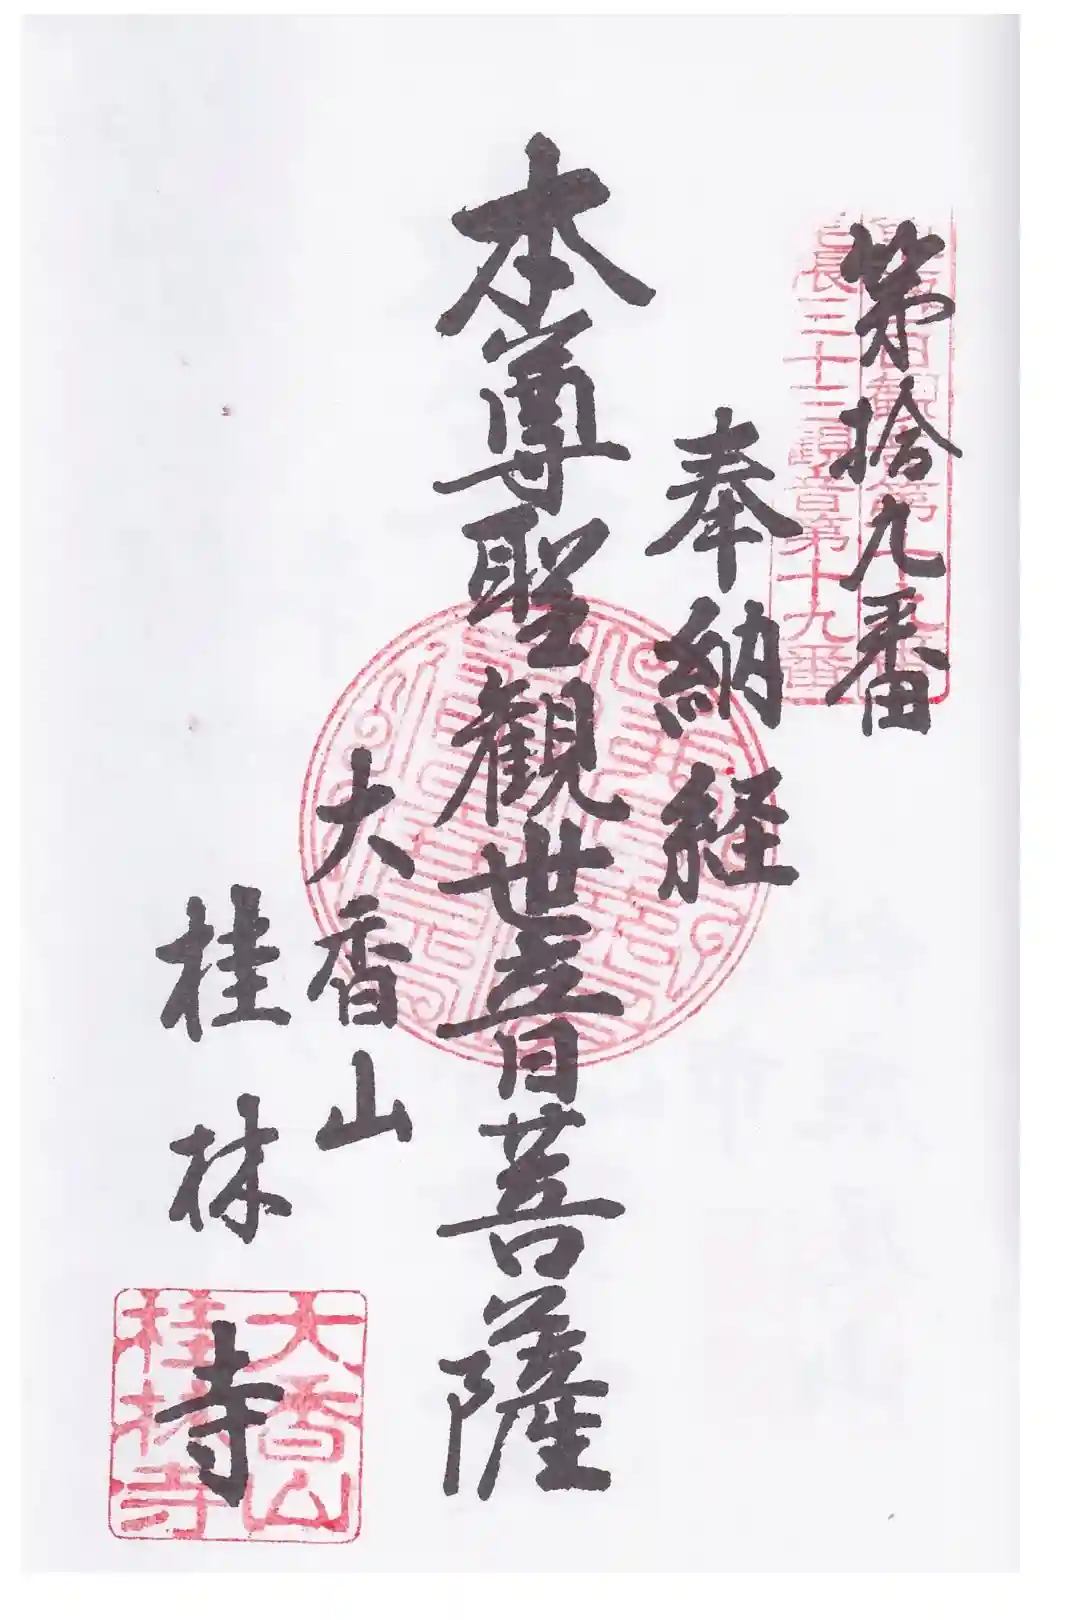 第拾九番
長三十三観音第十九番
奉納経
本尊聖観世音菩薩
大香山
桂林寺
大香山
桂林寺